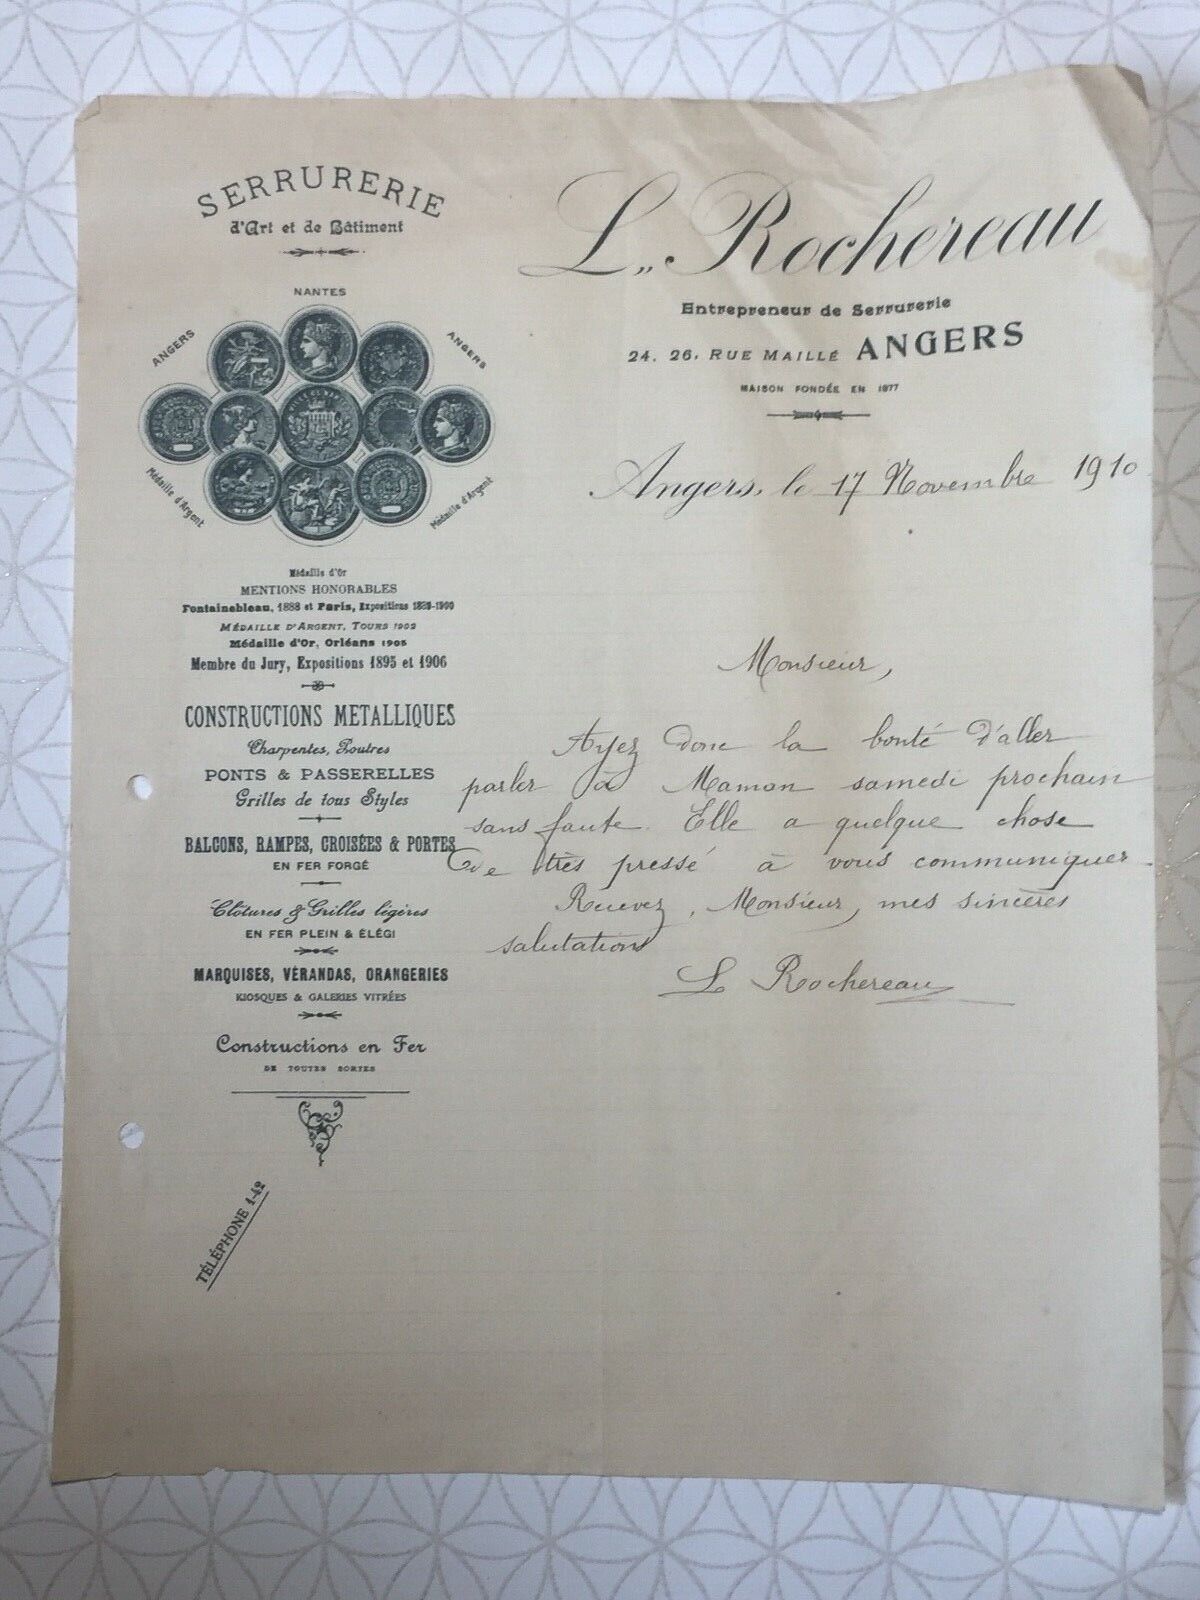 SERRURERIE
d'Art et de Bâtiment
NANTES
ANGERS
ANGERS
Médaille d'Argent
Médaille d'Argent
Médaille d'Or
MENTIONS HONORABLES
Fontainebleau, 1888 et Paris, Expositions 1889-1900
MÉDAILLE D'ARGENT, TOURS 1902
Médaille d'Or, Orléans 1905
Membre du Jury, Expositions 1895 et 1906
CONSTRUCTIONS METALLIQUES
Charpentes, Poutres
PONTS & PASSERELLES
Grilles de tous Styles
BALCONS, RAMPES, CROISÉES & PORTES
EN FER FORGÉ
Clôtures & Grilles légères
EN FER PLEIN & ÉLÉGI
MARQUISES, VÉRANDAS, ORANGERIES
KIOSQUES & GALERIES VITRÉES
Constructions en Fer
DE TOUTES SORTES
TÉLÉPHONE 1-42
L. Rochereau
Entrepreneur de Serrurerie
24, 26, RUE MAILLÉ ANGERS
MAISON FONDÉE EN 1877
Angers, le 17 Novembre 1910
Monsieur,
Ayez donc la bonté d'aller
parler à Maman samedi prochain
sans faute. Elle a quelque chose
de très pressé à vous communiquer.
Recevez, Monsieur, mes sincères
salutations
L Rochereau